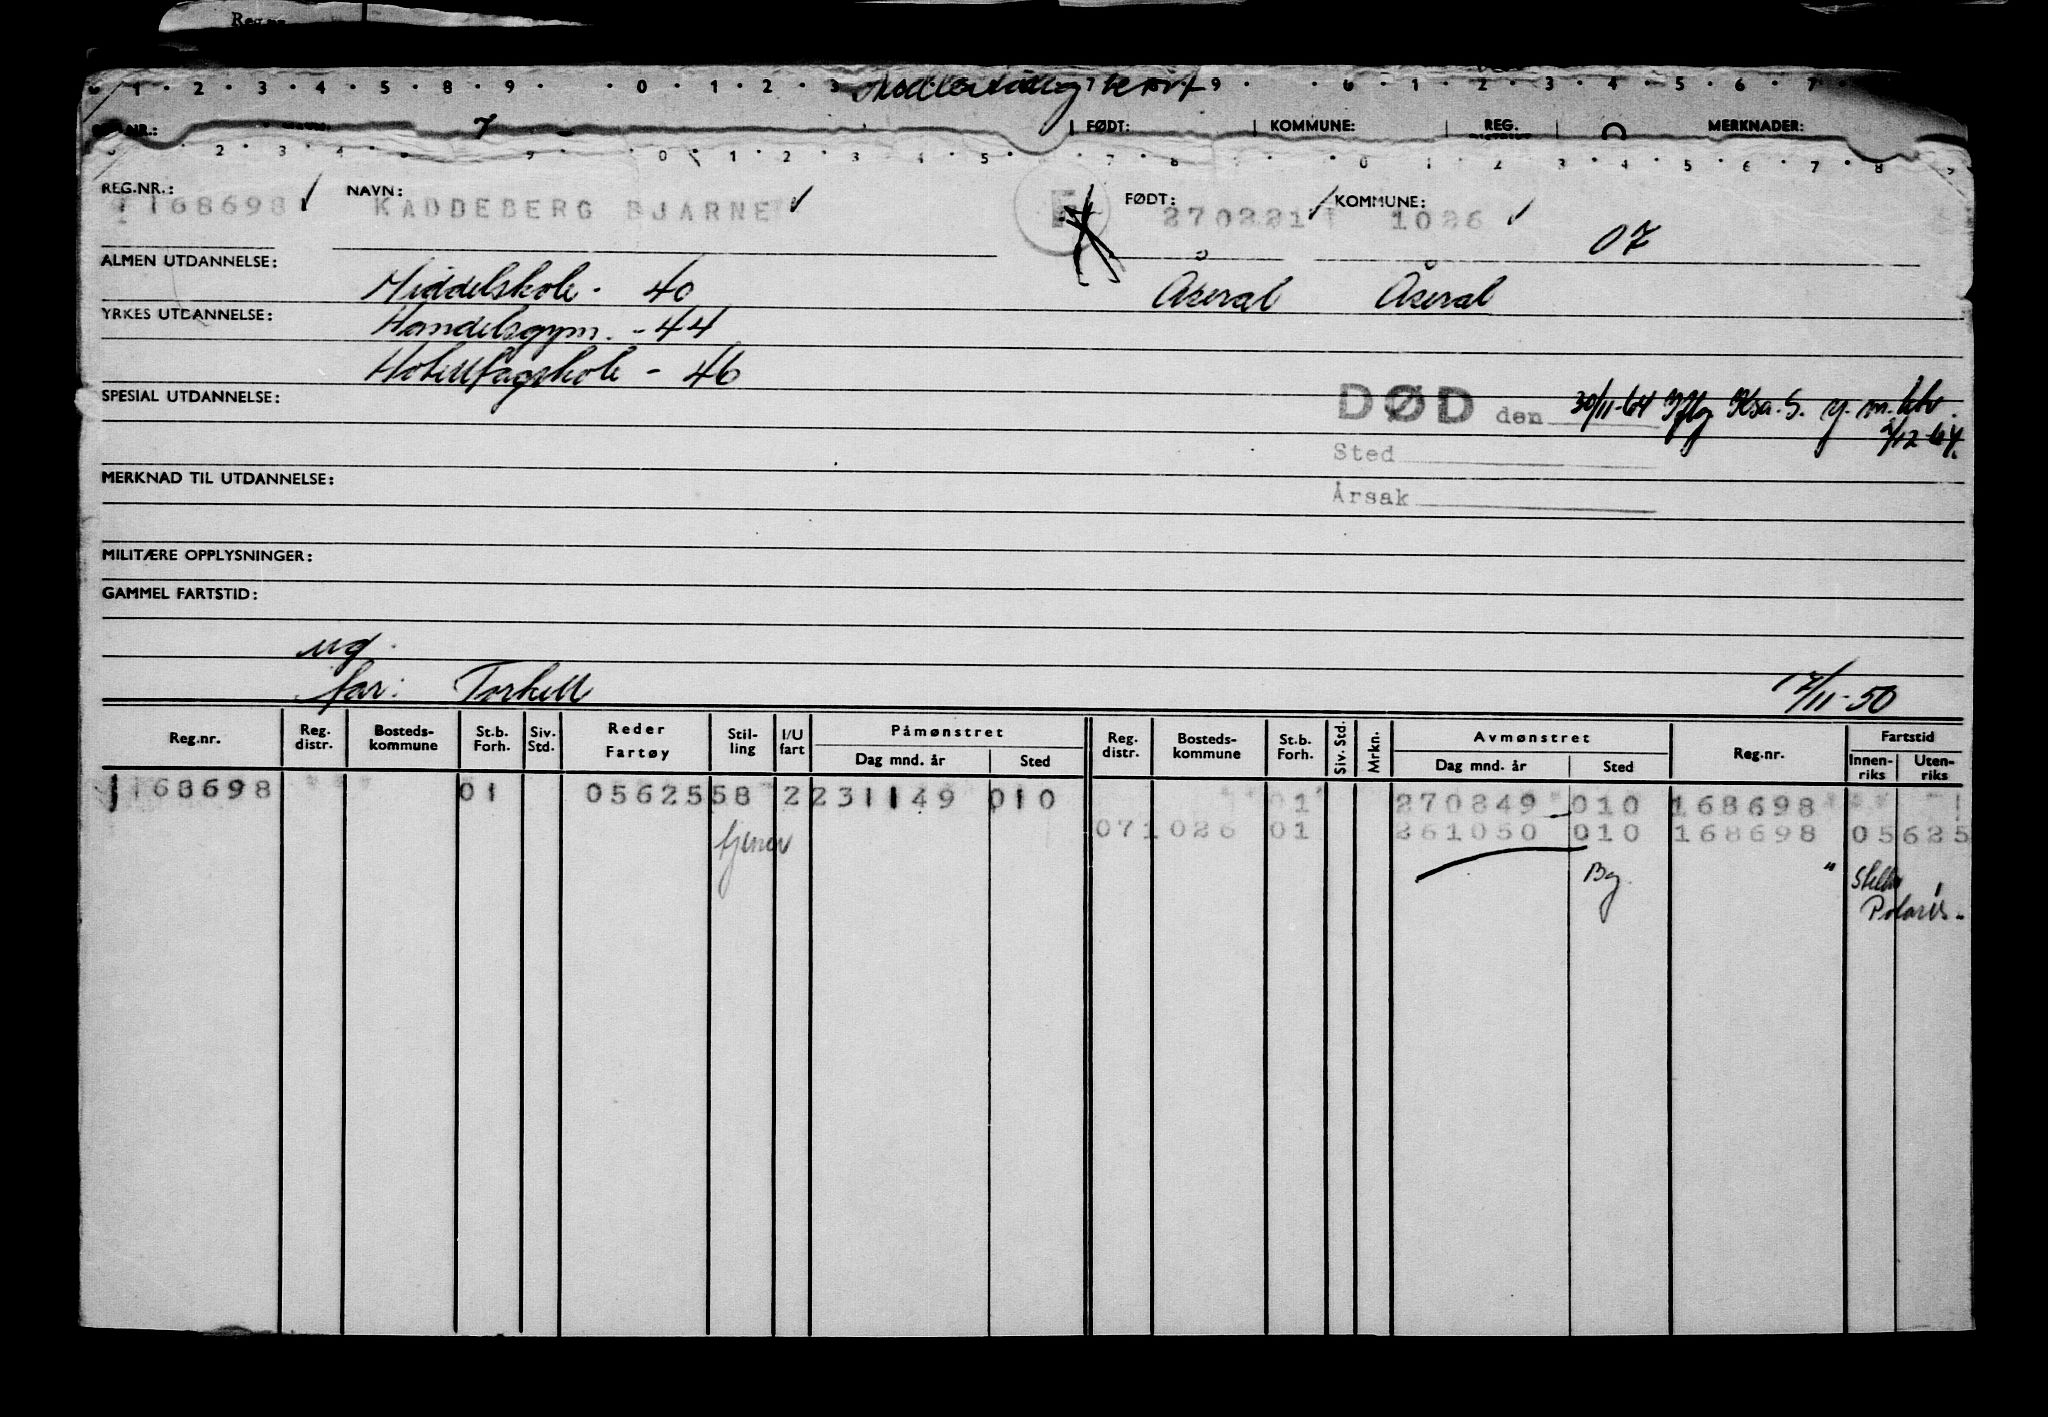 Reg.nr.
1 · 2 · 3 · 4 · 5 · 8 · 9 · 0 · 1 · 2 · 3 7 9 · 6 · 1 · 2 · 3 · 4 · 5 · 6 · 7
kort
NR.: 7 FØDT: KOMMUNE: REG. MERKNADER:
2 · 3 · 4 9 · 0 · 1 · 2 · 3 · 4 · 5 · 7 · 8 0 · 1 · 2 · 3 · 4 · 5 · 6 · 7 · 8
REG.NR.: NAVN: FØDT: KOMMUNE:
168698 KADDEBERG BJARNE F 270221 1026
07
ALMEN UTDANNELSE: Middelskole - 40 Åseral Åseral
YRKES UTDANNELSE: Handelsgym. - 44
Hotellfagskole - 46
SPESIAL UTDANNELSE: DØD den 30/11-64 Iflg Ksa. S. y. m.
/12 64.
Sted
MERKNAD TIL UTDANNELSE:
Årsak
MILITÆRE OPPLYSNINGER:
GAMMEL FARTSTID:
ug.
far: Torkell 17/11-50
Reg.nr. Reg. distr. Bosteds-kommune St.b. Forh. Siv. Std. Reder Fartøy Stil-ling I/U fart Påmønstret Dag mnd. år Sted Reg. distr. Bosteds-kommune St.b. Forh. Siv. Std. Mrkn. Avmønstret Dag mnd. år Sted Reg.nr. Fartstid Innen-riks Uten-riks
168698 01 05625 58 2 231149 010 01 270849 010 168698
071026 01 261050 010 168698 05625
tjener Bg. " Stella
Polaris -